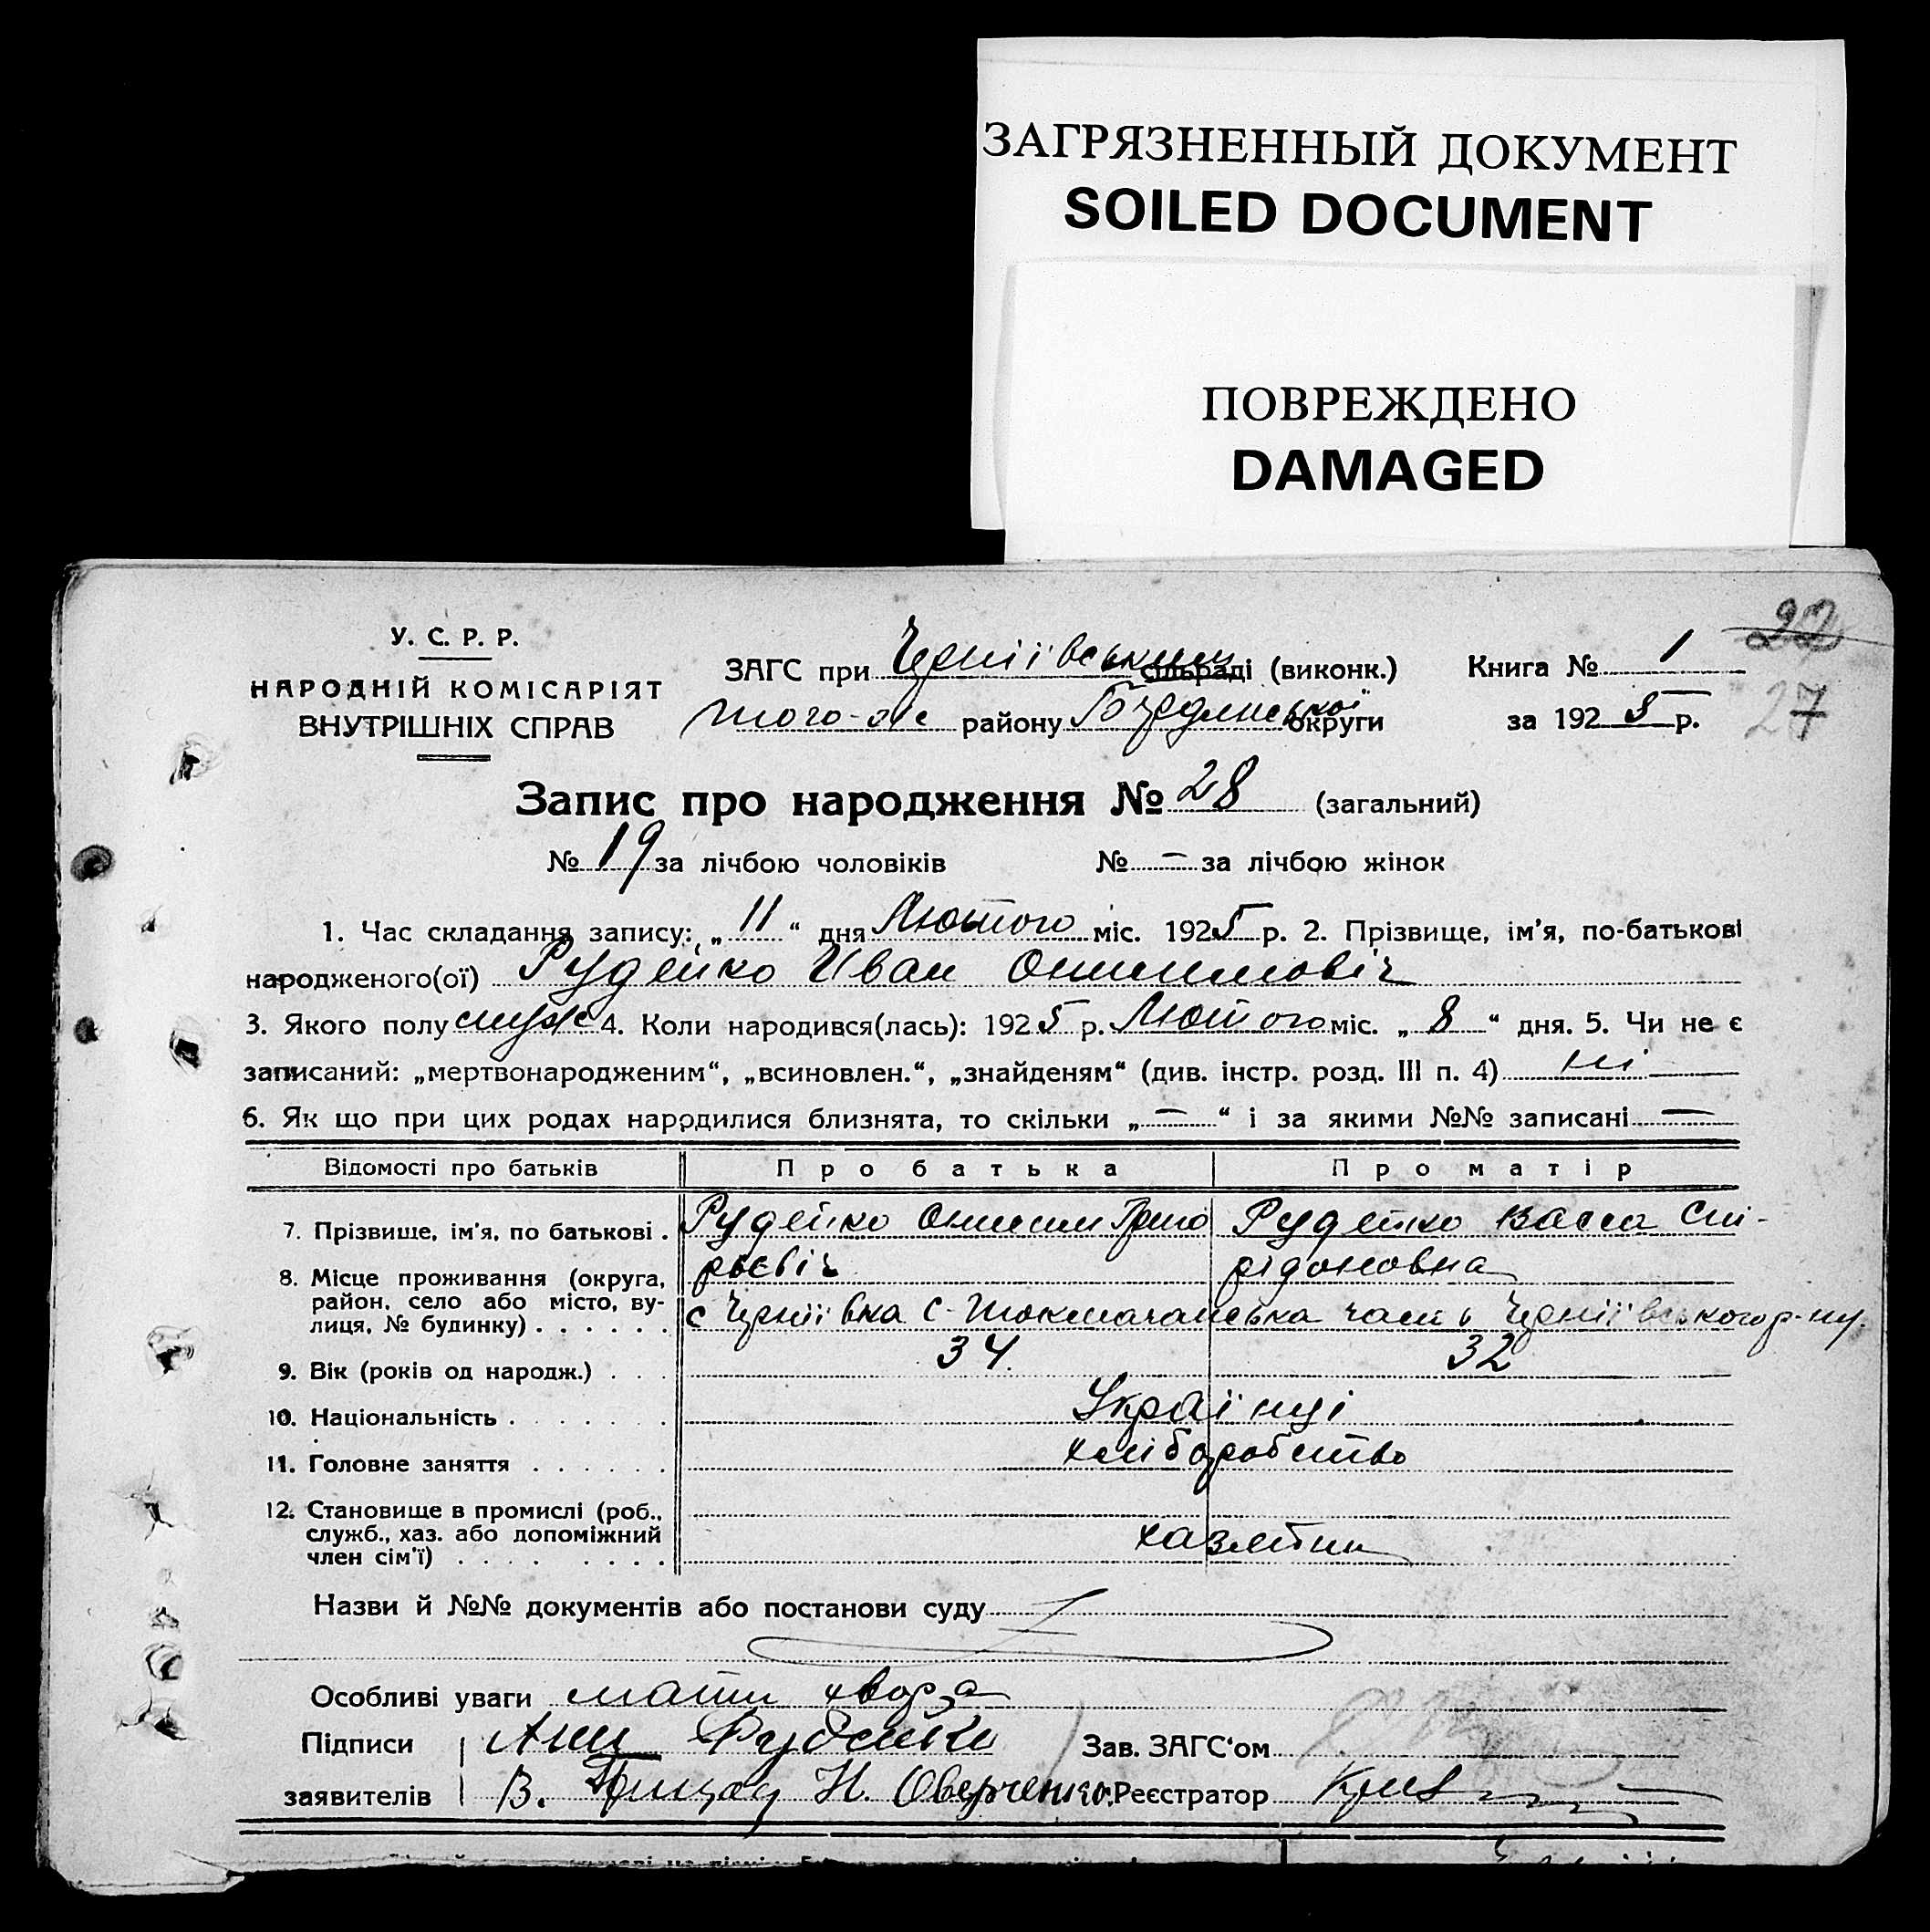 ЗАГРЯЗНЕННЫЙ ДОКУМЕНТ
SOILED DOCUMENT
ПОВРЕЖДЕНО
DAMAGED
У. С. Р. Р.
НАРОДНІЙ КОМІСАРІЯТ
ВНУТРІШНІХ СПРАВ
22
27
ЗАГС при Черніївським сільраді (виконк.) Книга № 1
того-же району Бердянської округи за 1925 р.
Запис про народження № 28 (загальний)
№ 19 за лічбою чоловіків № — за лічбою жінок
1. Час складання запису: „ 11 “ дня Лютого міс. 1925 р. 2. Прізвище, ім'я, по-батькові
народженого(ої) Рудейко Иван Онисимовіч
3. Якого полу муж 4. Коли народився(лась): 1925 р. Лютого міс. „ 8 “ дня. 5. Чи не є
записаний: „мертвонародженим“, „всиновлен.“, „знайденям“ (див. інстр. розд. III п. 4) ні
6. Як що при цих родах народилися близнята, то скільки „ — “ і за якими №№ записані —
Відомості про батьків Про батька Про матір
7. Прізвище, ім'я, по батькові . Рудейко Онисим Григо Рудейко Васса Спі-
рьєвіч рідоновна
8. Місце проживання (округа,
район, село або місто, ву-
лиця, № будинку) . . . . . . с Черніївка С-Токмачанська часть Черніївського р-ну.
9. Вік (років од народж.) . . . 34. 32
10. Національність . . . . . . . Українці
11. Головне заняття . . . . . . хліборобство
12. Становище в промислі (роб.,
служб., хаз. або допоміжний
член сім'ї) . . . . . . . . хазяїни
Назви й №№ документів або постанови суду
Особливі уваги мати хвора
Підписи Рудейко Зав. ЗАГС'ом
заявителів В. Н. Оверченко. Реєстратор